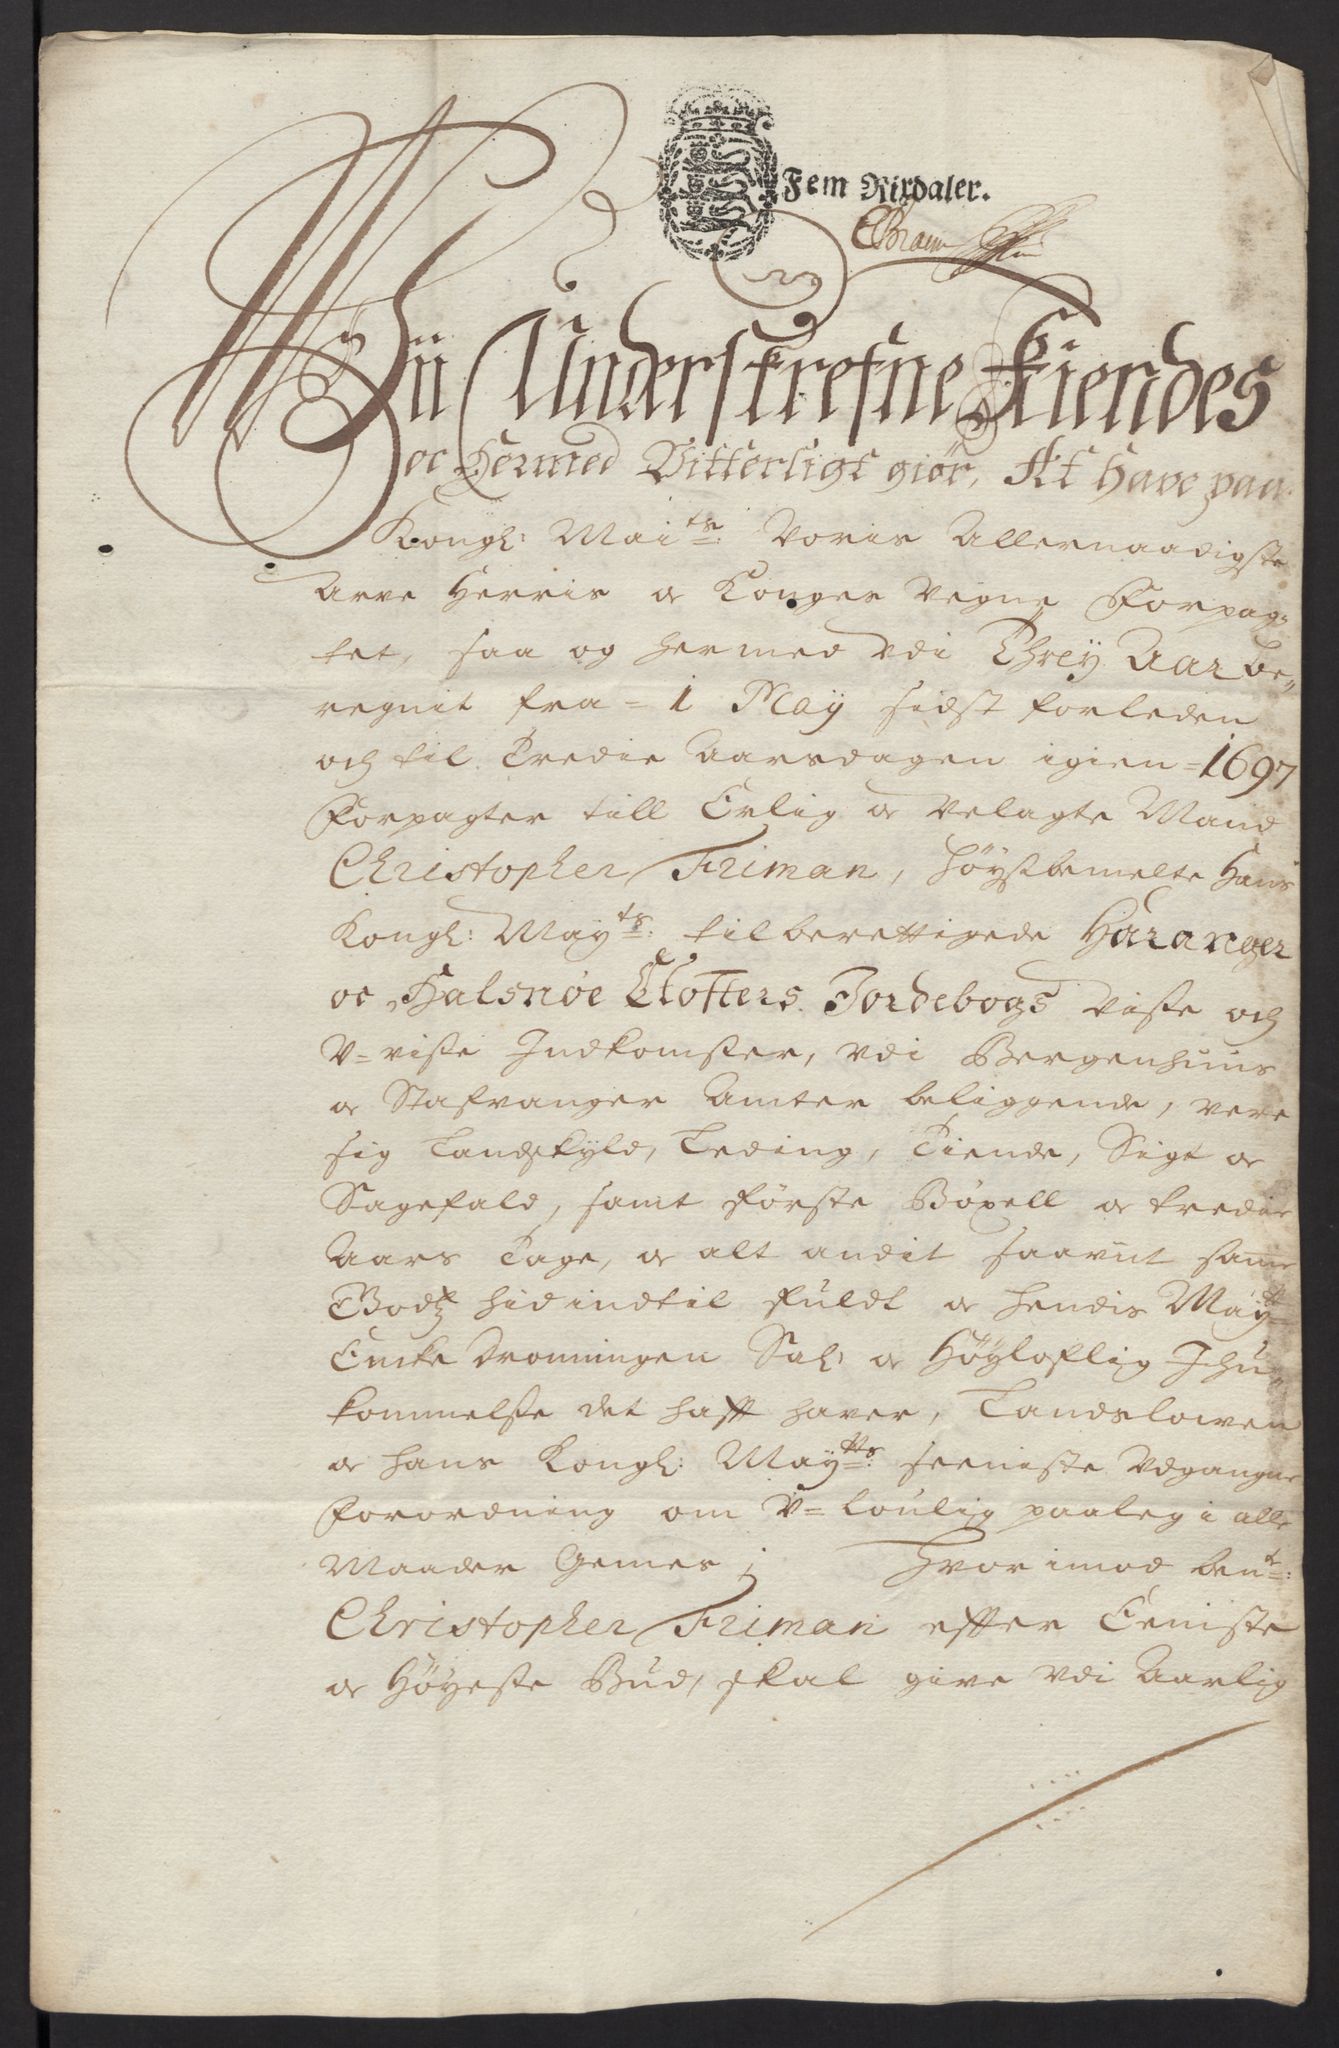 Fem Rixdaler.
Wii Underskrefne Kiendes
oc Hermed Vitterligt giør, At Have paa
Kongl: Maits: Voris Allernaadigste
Arve Herris oc Konges Vegne Forpag-
tet, saa og hermed Vdi Threy Aar be-
regnit fra = 1 May sidst forleden
och til Tredie Aarsdagen igien = 1697
Forpagter till Erlig oc Velagte Mand
Christopher Friman, høystbemelte Hans
Kongl: Mayts: tilberettigede Haranger
oc Halsnøe Closters Jordebogs Visse och
V=visse Indkomster, Vdi Bergenhuus
oc Stafvanger Amter beliggende, vere
sig Landskyld, Leding, Tiende, Sigt oc
Sagefald, samt første Bøxell oc tredie
Aars Tage, oc alt andit saavit samme
Godtz hid indtil fuldt oc Hendis Mayt
Encke Dronningen Sal: oc Høyloflig Ihu-
kommelse det hafft haver, Landslowen
oc Hans Kongl: Maytts: seeniste Vdgangne
Forordning om V=loulig paaleg i alle
Maader Gemes; Hvorimod bemte:
Christopher Friman effter Seeniste
oc Høyeste Bud, skal give Vdi Aarlig